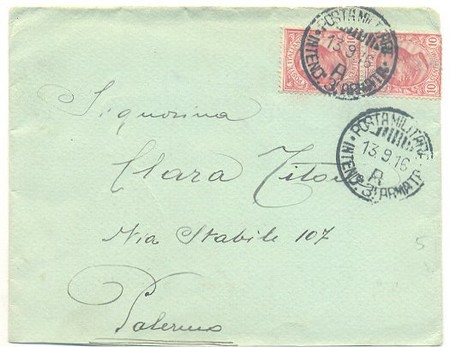 POSTA MILITARE
13.9.16
A
INTEND. 3ª ARMATA
10
10
POSTA MILITARE
13.9.16
A
INTEND. 3ª ARMATA
Signorina
Clara
Via Stabile 107
Palermo
5